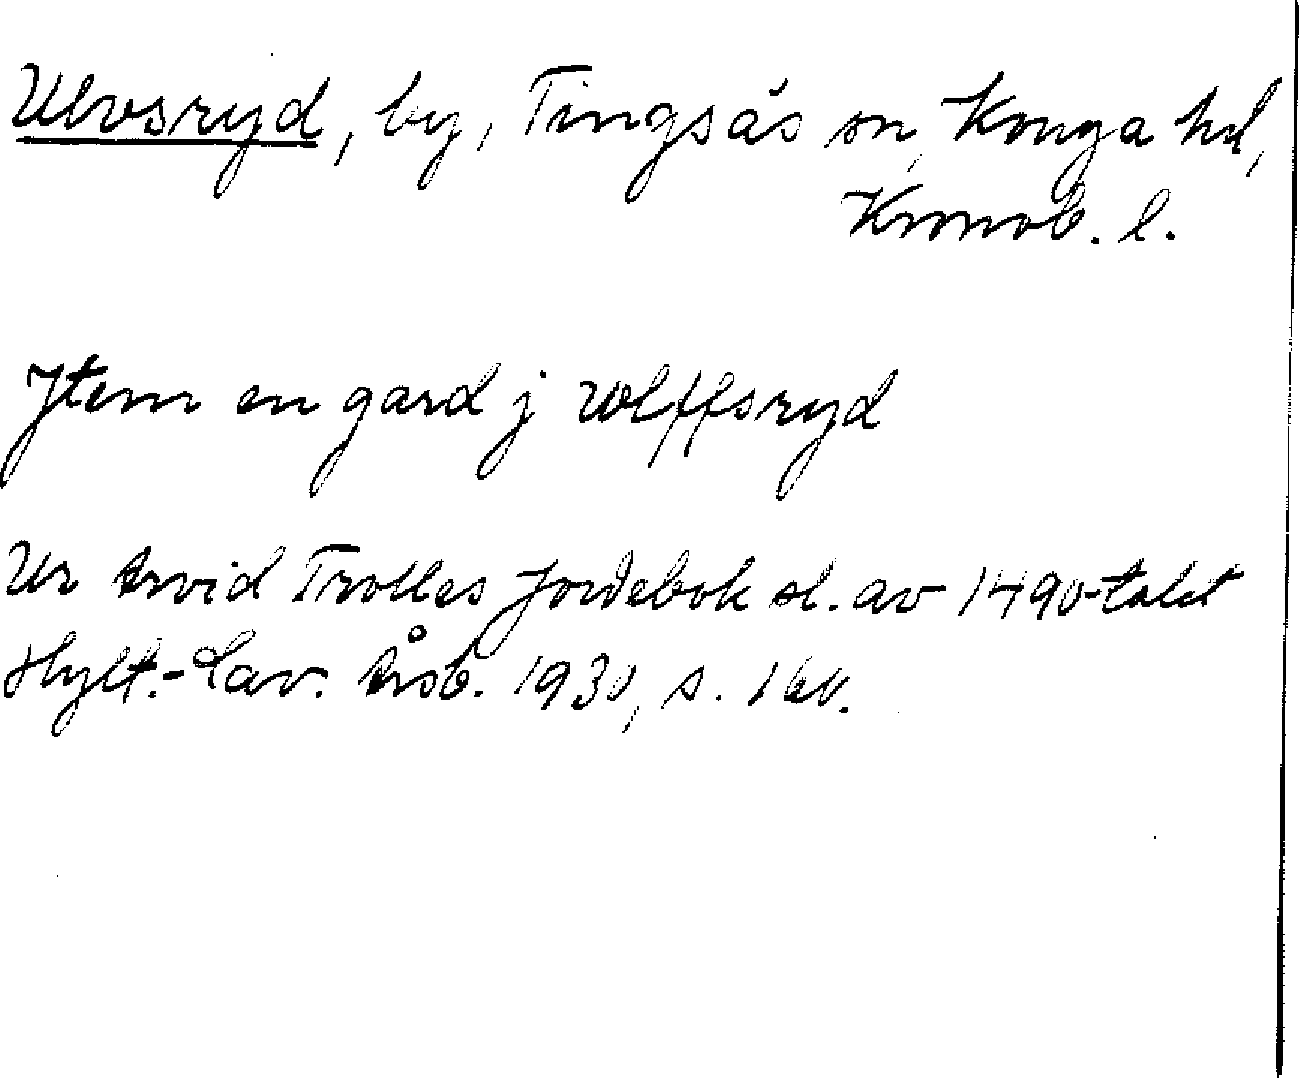 Ulvsryd, by, Tingsås sn, Konga hd,
Kronob. l.
Jtem en gard j wlffsryd
Ur Arvid Trolles jordebok sl. av 1490-talet
Hylt.-Cav. Årsb. 1930, s. 160.